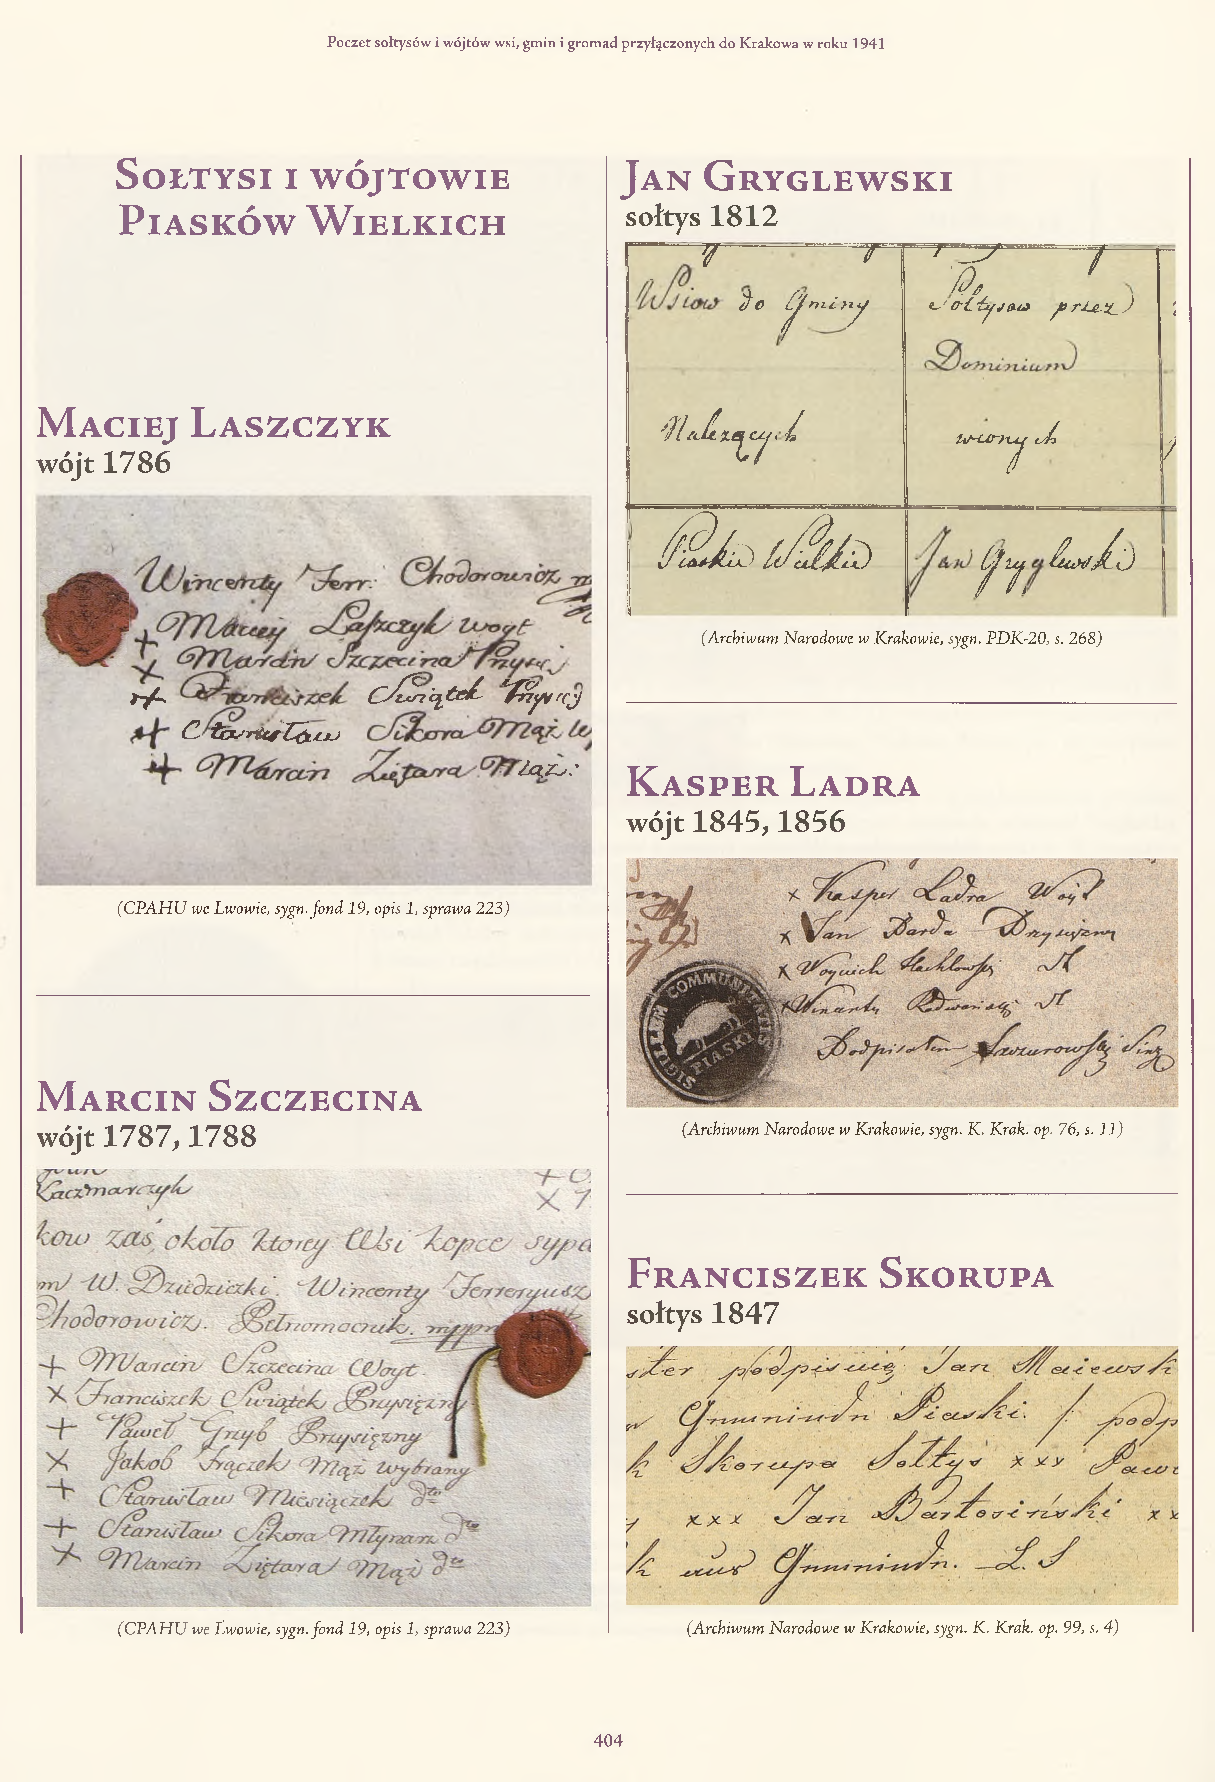 Poczet sołtysów i wójtów wsi, gmin i gromad przyłączonych do Krakowa w roku 1941
Sołtysi i wójtowie
Piasków Wielkich
Maciej Laszczyk
wójt 1786
Wincenty Ferr: Chodorowicz
+ Maciey Laszczyk woyt
x Marcin Szczecina Przysięż
++ Franciszek Swiątek Przysięż
++ Stanisław Sikora Mąż
++ Marcin Ziętara Mąż:
(CPAHU we Lwowie, sygn. fond 19, opis 1, sprawa 223)
Marcin Szczecina
wójt 1787, 1788
Kaczmarczyk
kow zaś około ktorey Wsi kopce sypa
W. Dziedziczki. Wincenty Ferreryusz
Chodorowicz. Pełnomocnik. mppr
+ Marcin Szczecina Woyt
x Franciszek Swiątek Przysięzny
+ Paweł Grzyb Przysięzny
x Jakob Frączek Mąż wybrany
+ Stanisław Miesiączek dto
+ Stanisław Sikora Młynarz dto
x Marcin Ziętara Mąż dto
(CPAHU we Lwowie, sygn. fond 19, opis 1, sprawa 223)
Jan Gryglewski
sołtys 1812
Wsiow do Gminy Sołtysow przez
Dominium
Należących wionych
Piaskie Wielkie Jan Gryglewski
(Archiwum Narodowe w Krakowie, sygn. PDK-20, s. 268)
Kasper Ladra
wójt 1845, 1856
x Kasper Ladra Woyt
x Jan Barda Przysiężny
x Woyciech
x Wincenty
Podpisałem
SIGILLUM COMMUNITATIS
PIASKI
(Archiwum Narodowe w Krakowie, sygn. K. Krak. op. 76, s. 11)
Franciszek Skorupa
sołtys 1847
ster podpisuię Jan Maiewsk
Piaski. /: podp
k Skorupa Sołtys x x x Pawe
x x x Jan Bartosiński x x
k aus L. S
(Archiwum Narodowe w Krakowie, sygn. K. Krak. op. 99, s. 4)
404